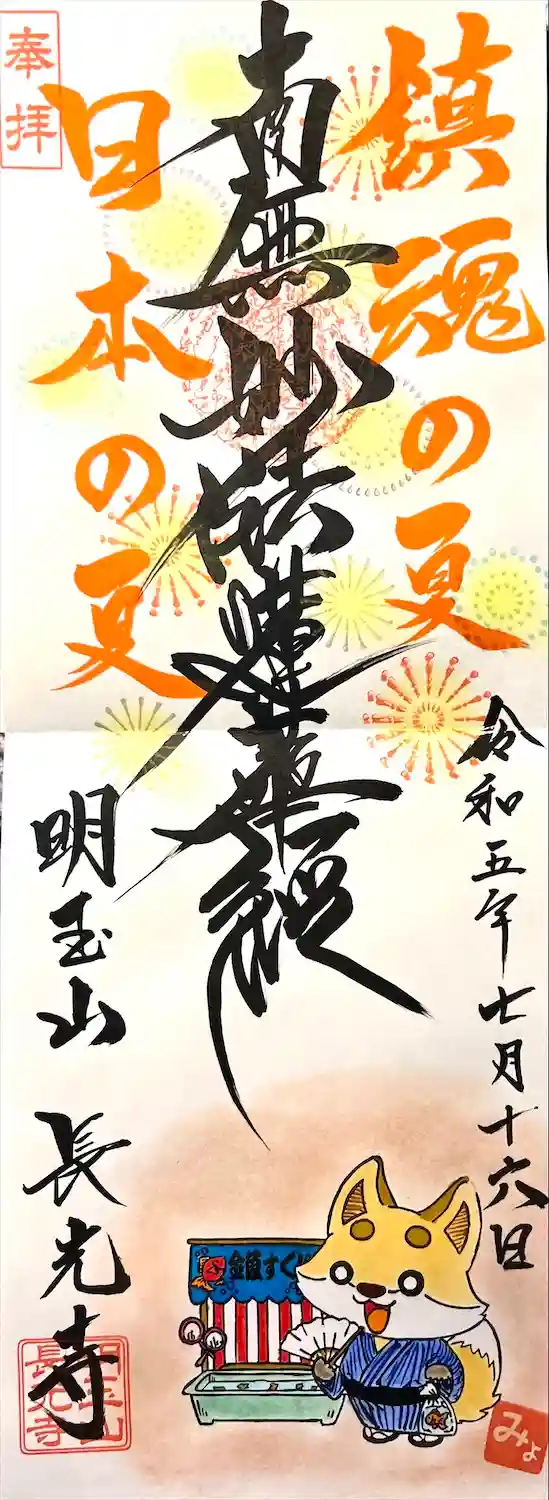 鎮魂の夏
令和五年七月十六日
南無妙法蓮華経
奉拝
日本の夏
明玉山 長光寺
金魚すくい
明玉山
長光寺
みょ